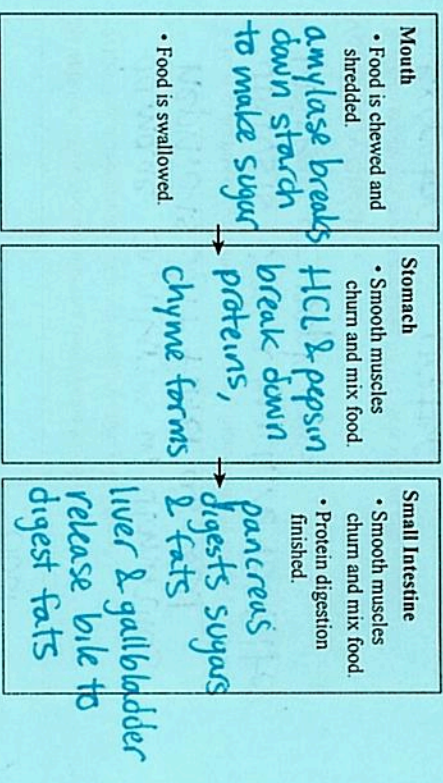 Mouth
• Food is chewed and
shredded.
amylase breaks
down starch
to make sugar
• Food is swallowed.
Stomach
• Smooth muscles
churn and mix food.
HCL & pepsin
break down
proteins,
chyme forms
Small Intestine
• Smooth muscles
churn and mix food.
• Protein digestion
finished.
pancreas
digests sugars
& fats
liver & gallbladder
release bile to
digest fats